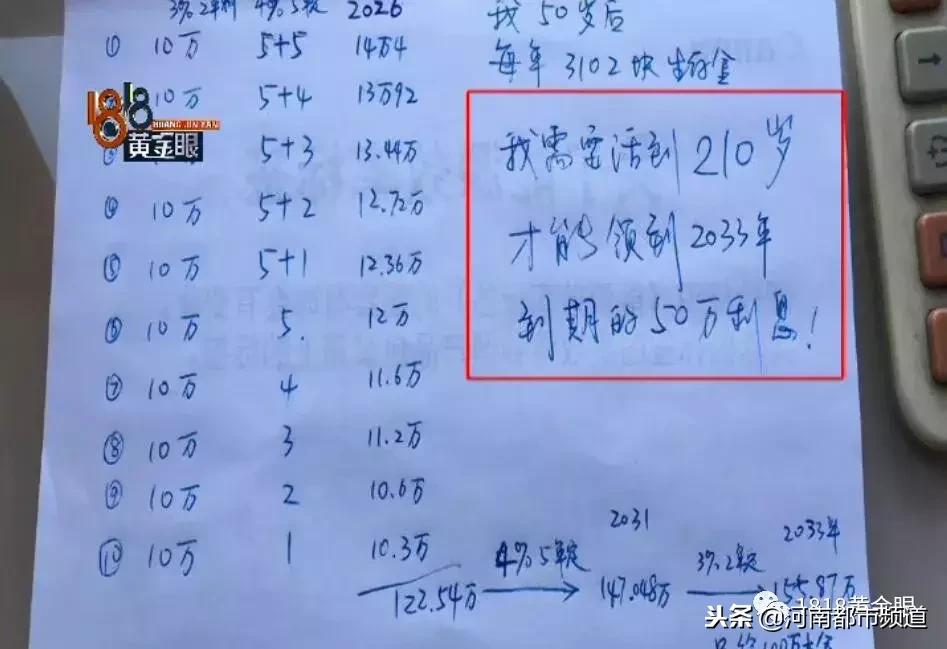 3% 2年利 4% 5年定 2026
① 10万 5+5 14万4
10万 5+4 13万92
5+3 13.44万
④ 10万 5+2 12.72万
⑤ 10万 5+1 12.36万
⑥ 10万 5. 12万
⑦ 10万 4 11.6万
⑧ 10万 3 11.2万
⑨ 10万 2 10.6万
⑩ 10万 1 10.3万
122.54万
4% 5年定
2031
147.048万
3% 2年定
2033年
155.87万
我50岁后
每年3102块生存金
我需要活到210岁
才能领到2033年
到期的50万利息!
1818
HUANG JIN YAN
黄金眼
1818黄金眼
头条 @河南都市频道